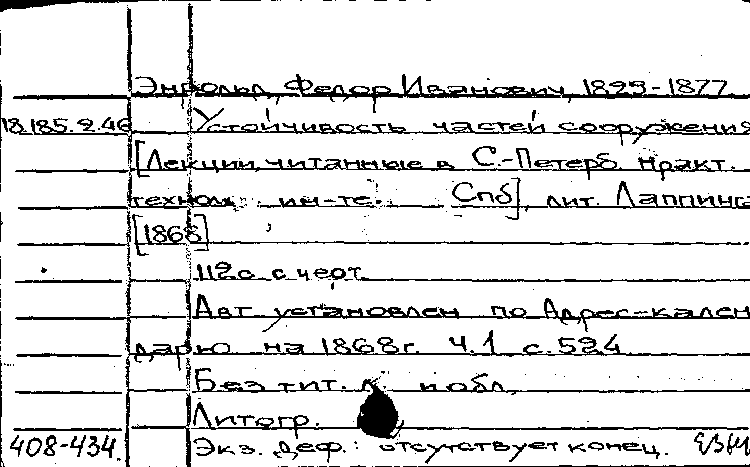 Энрольд, Федор Иванович, 1829-1877
18.185.2.46 Устойчивость частей сооружения
[Лекции, читанные в С.-Петерб практ.
технол. ин-те. Спб], лит. Лаппинг
[1868]
112с. с черт.
Авт установлен по Адрес-кален
дарю на 1868г. Ч.1 с.524
Без тит. л. и обл.
Литогр.
408-434. Экз. деф.: отсутствует конец.